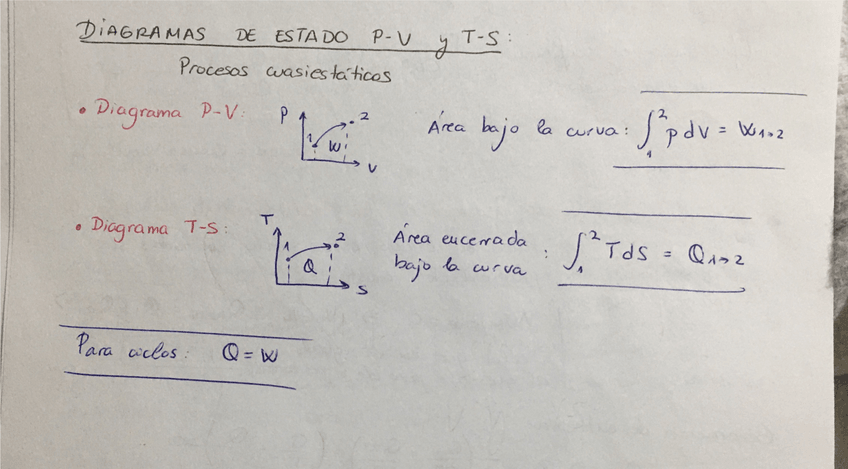 DIAGRAMAS DE ESTADO P-V y T-S:
Procesos cuasiestáticos
• Diagrama P-V:
P
1
2
W
V
Área bajo la curva: ∫₁² p dV = W₁→₂
• Diagrama T-S:
T
1
2
Q
S
Área encerrada
bajo la curva : ∫₁² T dS = Q₁→₂
Para ciclos: Q = W